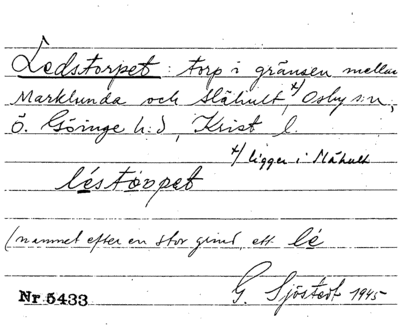 Ledstorpet : torp i gränsen mellan
Marklunda och Slähult, x/ Osby s:n,
Ö. Göinge h:d, Krist l.
x/ ligger i Slähult
léstorpet
(namnet efter en stor grind, ett lé
Nr 5433 G. Sjöstedt 1945